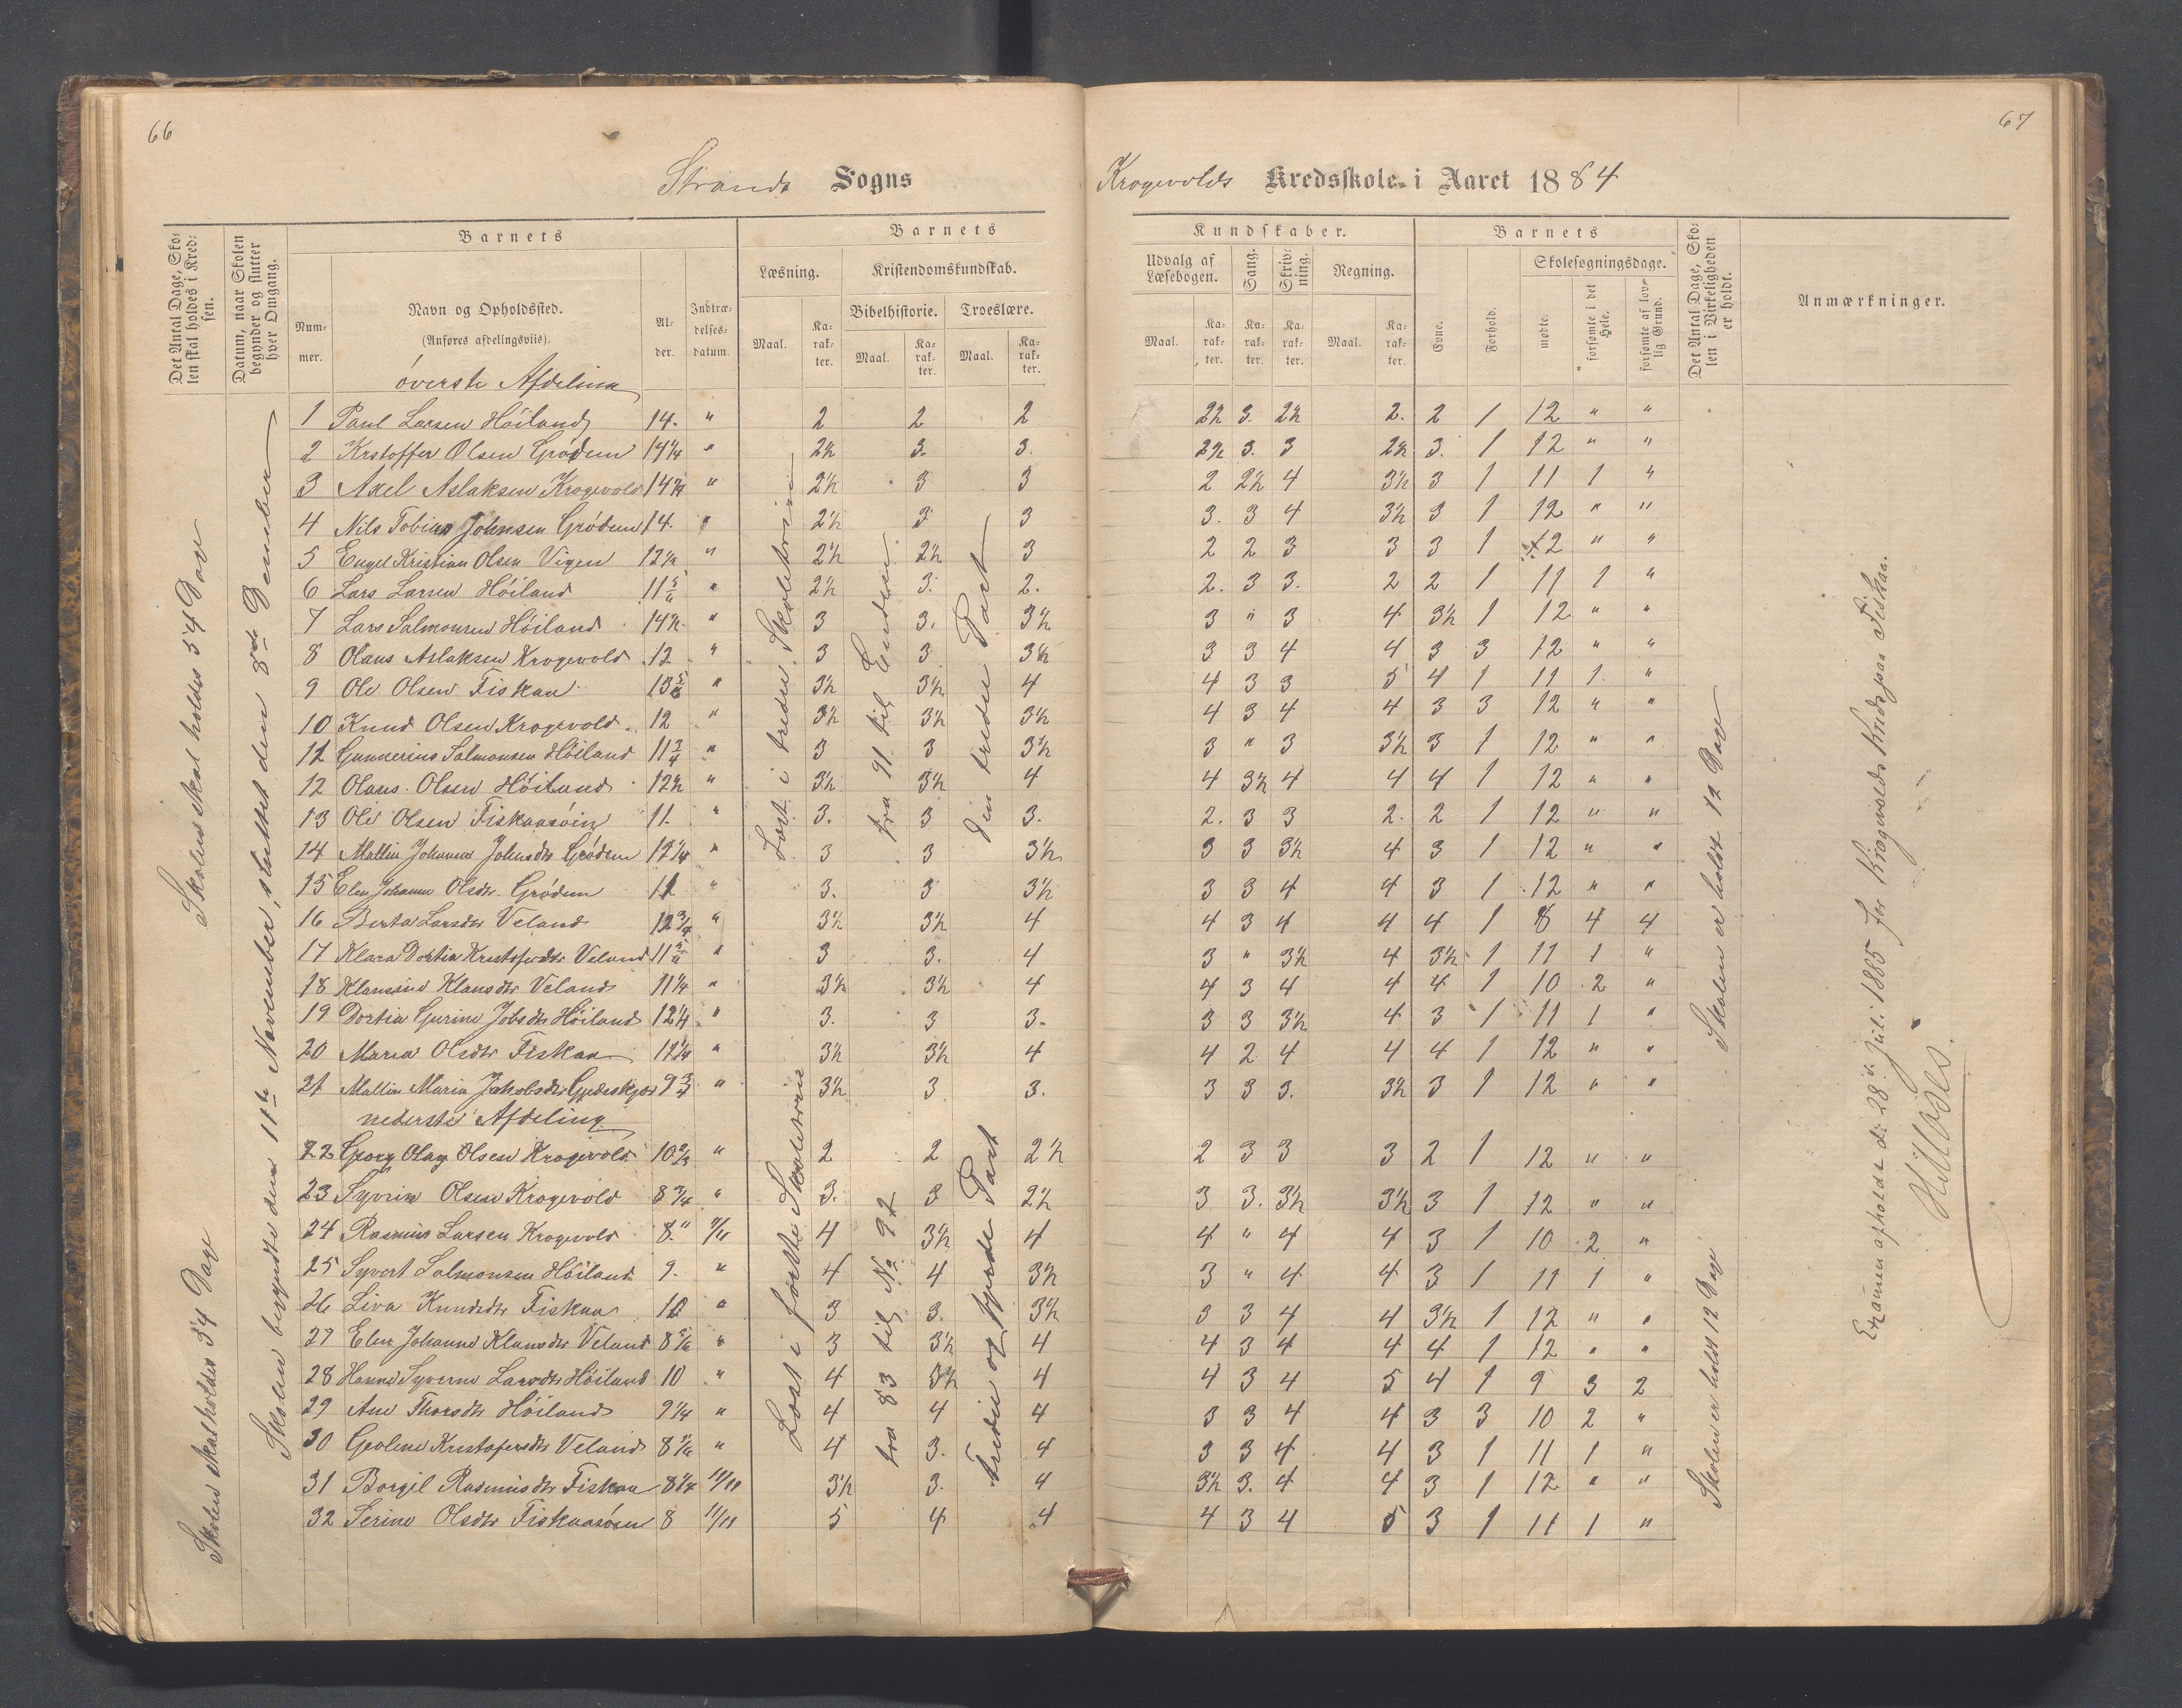 66
Strands Sogns
Det Antal Dage, Sko-
len skal holdes i Kred-
sen.
Datum, naar Skolen
begynder og slutter
hver Omgang.
Barnets
Num-
mer.
Navn og Opholdssted.
(Anføres afdelingsviis).
Al-
der.
Indtræ-
delses-
datum.
Barnets
Læsning.
Kristendomskundskab.
Bibelhistorie. Troeslære.
Maal. Ka-
rak-
ter.
Maal. Ka-
rak-
ter.
Maal. Ka-
rak-
ter.
øverste Afdeling
1 Paul Larsen Höiland 14. " 2 2 2
2 Krstoffer Olsen Grødem 14 1/4 " 2½ 3. 3.
3 Axel Aslaksen Krogevold 14 3/4 " 2½ 3 3
4 Nils Tobias Johnsen Grødem 14. " 2½ 3 3
5 Engel Kristian Olsen Vigen 12½ " 2½ 2½ 3
6 Lars Larsen Höiland 11 5/6 " 2½ 3. 2.
7 Lars Salmonsen Höiland 14½ " 3 3. 3½
8 Olaus Aslaksen Krogevold 12 " 3 3 3½
9 Ole Olsen Fiskaa 13 5/6 " 3½ 3½ 4
10 Knud Olsen Krogevold 12 " 3½ 3½ 3½
11 Gunnerius Salmonsen Höiland 11 3/4 " 3 3 3½
12 Olaus Olsen Höiland 12½ " 3½ 3½ 4
13 Ole Olsen Fiskaasöen 11. " 3. 3 3.
14 Mallin Johanne Johnsdtr Grødem 12 1/4 " 3 3 3½
15 Elen Johanne Olsdtr Grødem 12 " 3. 3 3½
16 Berta Larsdtr Veland 12 3/4 " 3½ 3½ 4
17 Klara Dortia Krestofersdtr Veland 11 5/6 " 3 3. 4
18 Klausine Klausdtr Veland 11 1/4 " 3½ 3½ 4
19 Dortia Gurine Jobsdtr Höiland 12 1/4 " 3. 3 3.
20 Maria Olsdtr Fiskaa 12 1/4 " 3½ 3½ 4
21 Mallin Maria Jakobsdtr 9 3/4 " 3½ 3 3.
nederste Afdeling
22 Georg Olay Olsen Krogevold 10 2/3 " 2 2 2½
23 Syvrin Olsen Krogevold 8 3/4 " 3. 3 2½
24 Rasmus Larsen Krogevold 8." 4 3½ 4
25 Syvert Salmonsen Höiland 9. " 4 4 3½
26 Liva Knudsdtr Fiskaa 10 " 3 3. 3½
27 Elen Johanne Klausdtr Veland 8 5/6 " 3 3½ 4
28 Hanne Syverine Larsdtr Höiland 10 " 4 3½ 4
29 Ane Thorsdtr Höiland 9 1/4 " 4 4 4
30 Goline Krestofersdtr Veland 8 5/6 " 4 3. 4
31 Borgil Rasmusdtr Fiskaa 8 1/4 11/11 3½ 3. 4
32 Serine Olsdtr Fiskaasöen 8 11/11 5 4 4
Skolen skal holdes 54 Dage
Skolen skal holdes 54 Dage
Skolen begyndte den 11te November, sluttet den 8de December
Læst i tredie Skoletrin
fra 91 til Enden
Den tredie Part
Læst i første Skoletrin
fra 83 til No 92
tredie og fjerde Part
67
Krogevolds Kredsskole i Aaret 1884
Kundskaber.
Udvalg af
Læsebogen.
Sang.
Skriv-
ning.
Regning.
Maal. Ka-
rak-
ter.
Ka-
rak-
ter.
Ka-
rak-
ter.
Maal. Ka-
rak-
ter.
Barnets
Evne.
Forhold.
Skolesøgningsdage.
mødte.
forsømte i det
Hele.
forsømte af lov-
lig Grund.
Det Antal Dage, Sko-
len i Virkeligheden
er holdt.
Anmærkninger.
2½ 3. 2½ 2. 2 1 12 " "
2½ 3. 3 2½ 3. 1 12 " "
2 2½ 4 3½ 3 1 11 1 "
3. 3 4 3½ 3 1 12 " "
2 2 3 3 3 1 12 " "
2. 3 3. 2 2 1 11 1 "
3 " 3 4 3½ 1 12 " "
3 3 4 4 3 3 12 " "
4 3 3 5 4 1 11 1 "
4 3 4 4 3 3 12 " "
3 " 3 3½ 3 1 12 " "
4 3½ 4 4 4 1 12 " "
2. 3 3 2. 2 1 12 " "
3 3 3½ 4 3 1 12 " "
3 3 4 4 3 1 12 " "
4 3 4 4 4 1 8 4 4
3 " 3½ 4 3½ 1 11 1 "
4 3 4 4 4 1 10 2 "
3 3 3½ 4 3 1 11 1 "
4 2 4 4 4 1 12 " "
3 3 3. 3½ 3 1 12 " "
2 3 3 3 2 1 12 " "
3 3. 3½ 3½ 3 1 12 " "
4 " 4 4 3 1 10 2 "
3 " 4 4 3 1 11 1 "
3 3 4 4 3½ 1 12 " "
4 3 4 4 4 1 12 " "
4 3 4 5 4 1 9 3 2
3 3 4 4 3 3 10 2 "
3 3 4 4 3 1 11 1 "
3½ 3. 4 4 3 1 12 " "
4 3 4 5 3 1 11 1 "
Skolen er holdt 12 Dage
Skolen er holdt 12 Dage
Examen afholdt d: 28 Juli 1885 for Krogevolds Kreds paa Fiskaa.